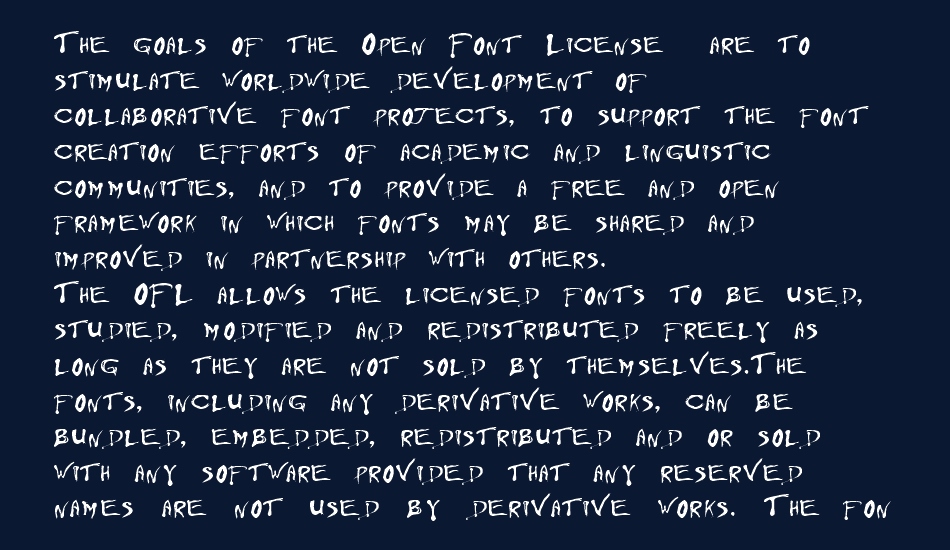 The goals of the Open Font License are to
stimulate worldwide development of
collaborative font projects, to support the font
creation efforts of academic and linguistic
communities, and to provide a free and open
framework in which fonts may be shared and
improved in partnership with others.
The OFL allows the licensed fonts to be used,
studied, modified and redistributed freely as
long as they are not sold by themselves.The
fonts, including any derivative works, can be
bundled, embedded, redistributed and or sold
with any software provided that any reserved
names are not used by derivative works. The fon